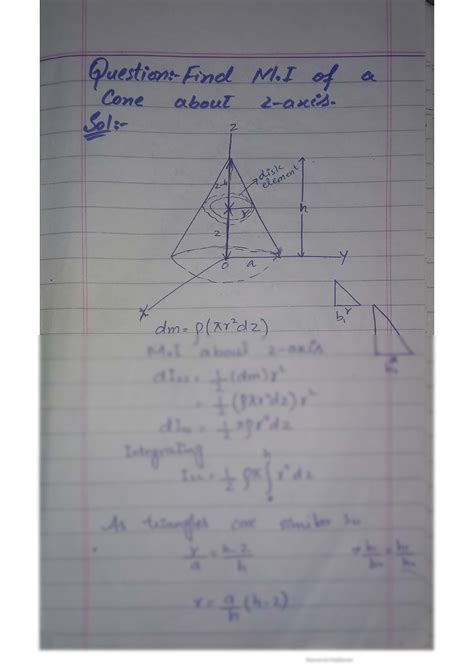 Question:- Find M.I of a
Cone about z-axis.
Sol:-
z
disk
element
h
r
z
o
a
y
x
r
dm = ρ(πr²dz)
M.I about z-axis
dIzz = 1/2 (dm) r²
= 1/2 (ρπr²dz) r²
dIzz = 1/2 πρr⁴dz
Integrating
Izz = 1/2 ρπ ∫ r⁴ dz
As triangles are similar so
r/a = h-z/h
r = a/h (h-z)